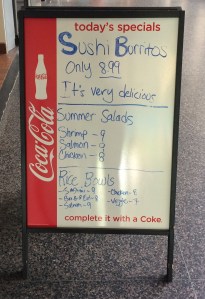 today's specials
Sushi Burritos
Only 8.99
It's very delicious
Coca-Cola
Summer Salads
Shrimp - 9
Salmon - 9
Chicken - 8
Rice Bowls
Chicken - 8
Veggie - 7
Salmon - 9
complete it with a Coke